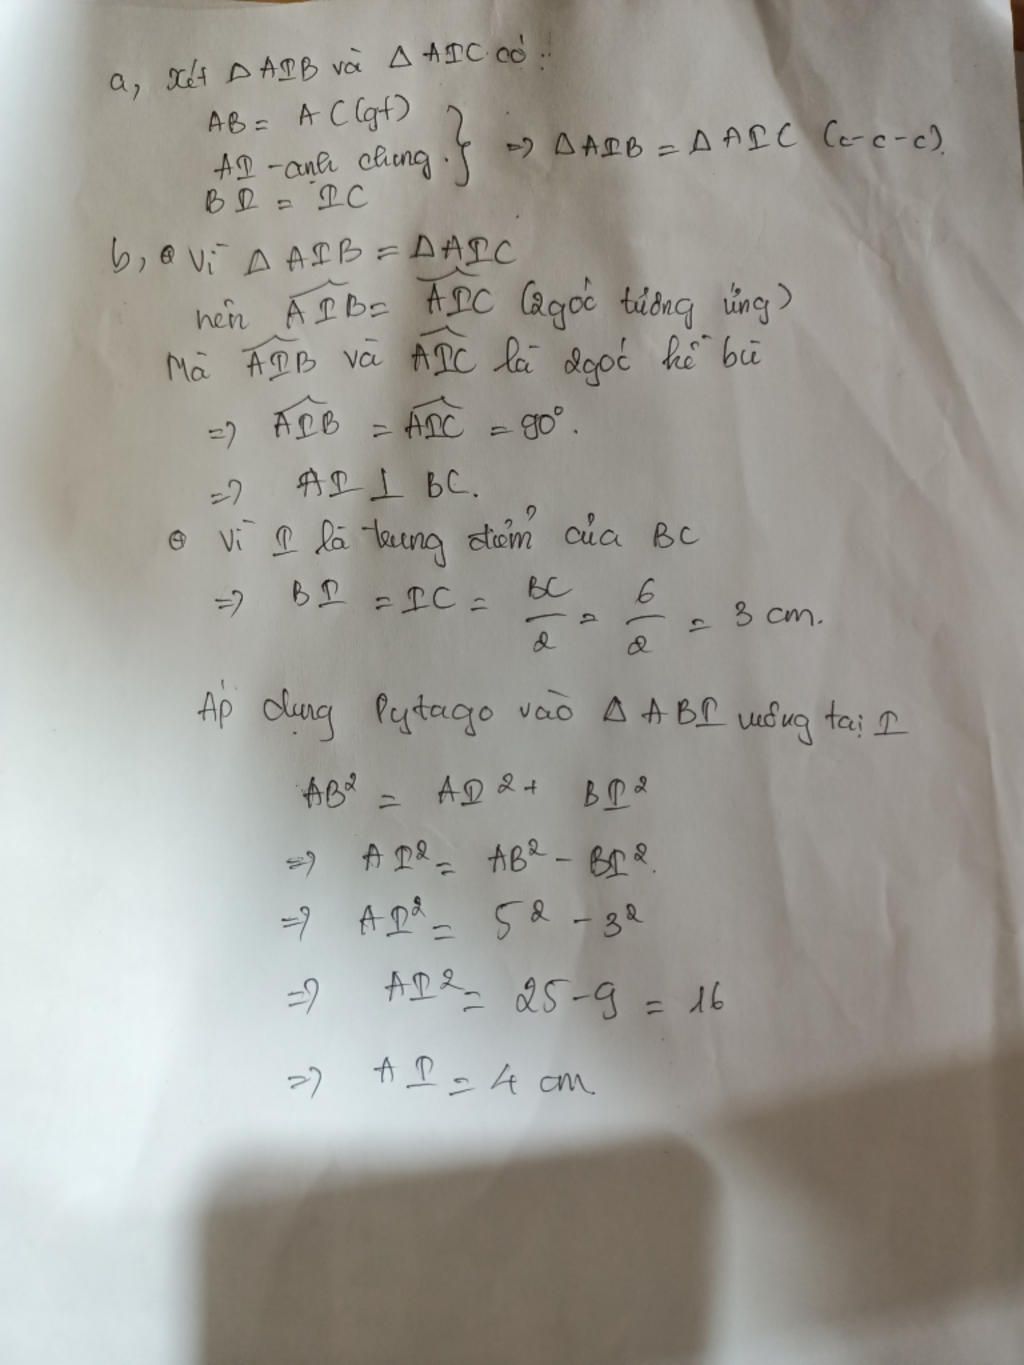 a, Xét Δ AIB và Δ AIC có:
AB = AC (gt)
AI - anh chung. } => Δ AIB = Δ AIC (c-c-c).
BI = IC
b, Vì Δ AIB = Δ AIC
nên \widehat{AIB} = \widehat{AIC} (2 góc tương ứng)
Mà \widehat{AIB} và \widehat{AIC} là 2 góc kề bù
=> \widehat{AIB} = \widehat{AIC} = 90°.
=> AI ⊥ BC.
Vì I là trung điểm của BC
=> BI = IC = BC/2 = 6/2 = 3 cm.
Áp dụng Pytago vào Δ ABI vuông tại I
AB² = AI² + BI²
=> AI² = AB² - BI².
=> AI² = 5² - 3²
=> AI² = 25 - 9 = 16
=> AI = 4 cm